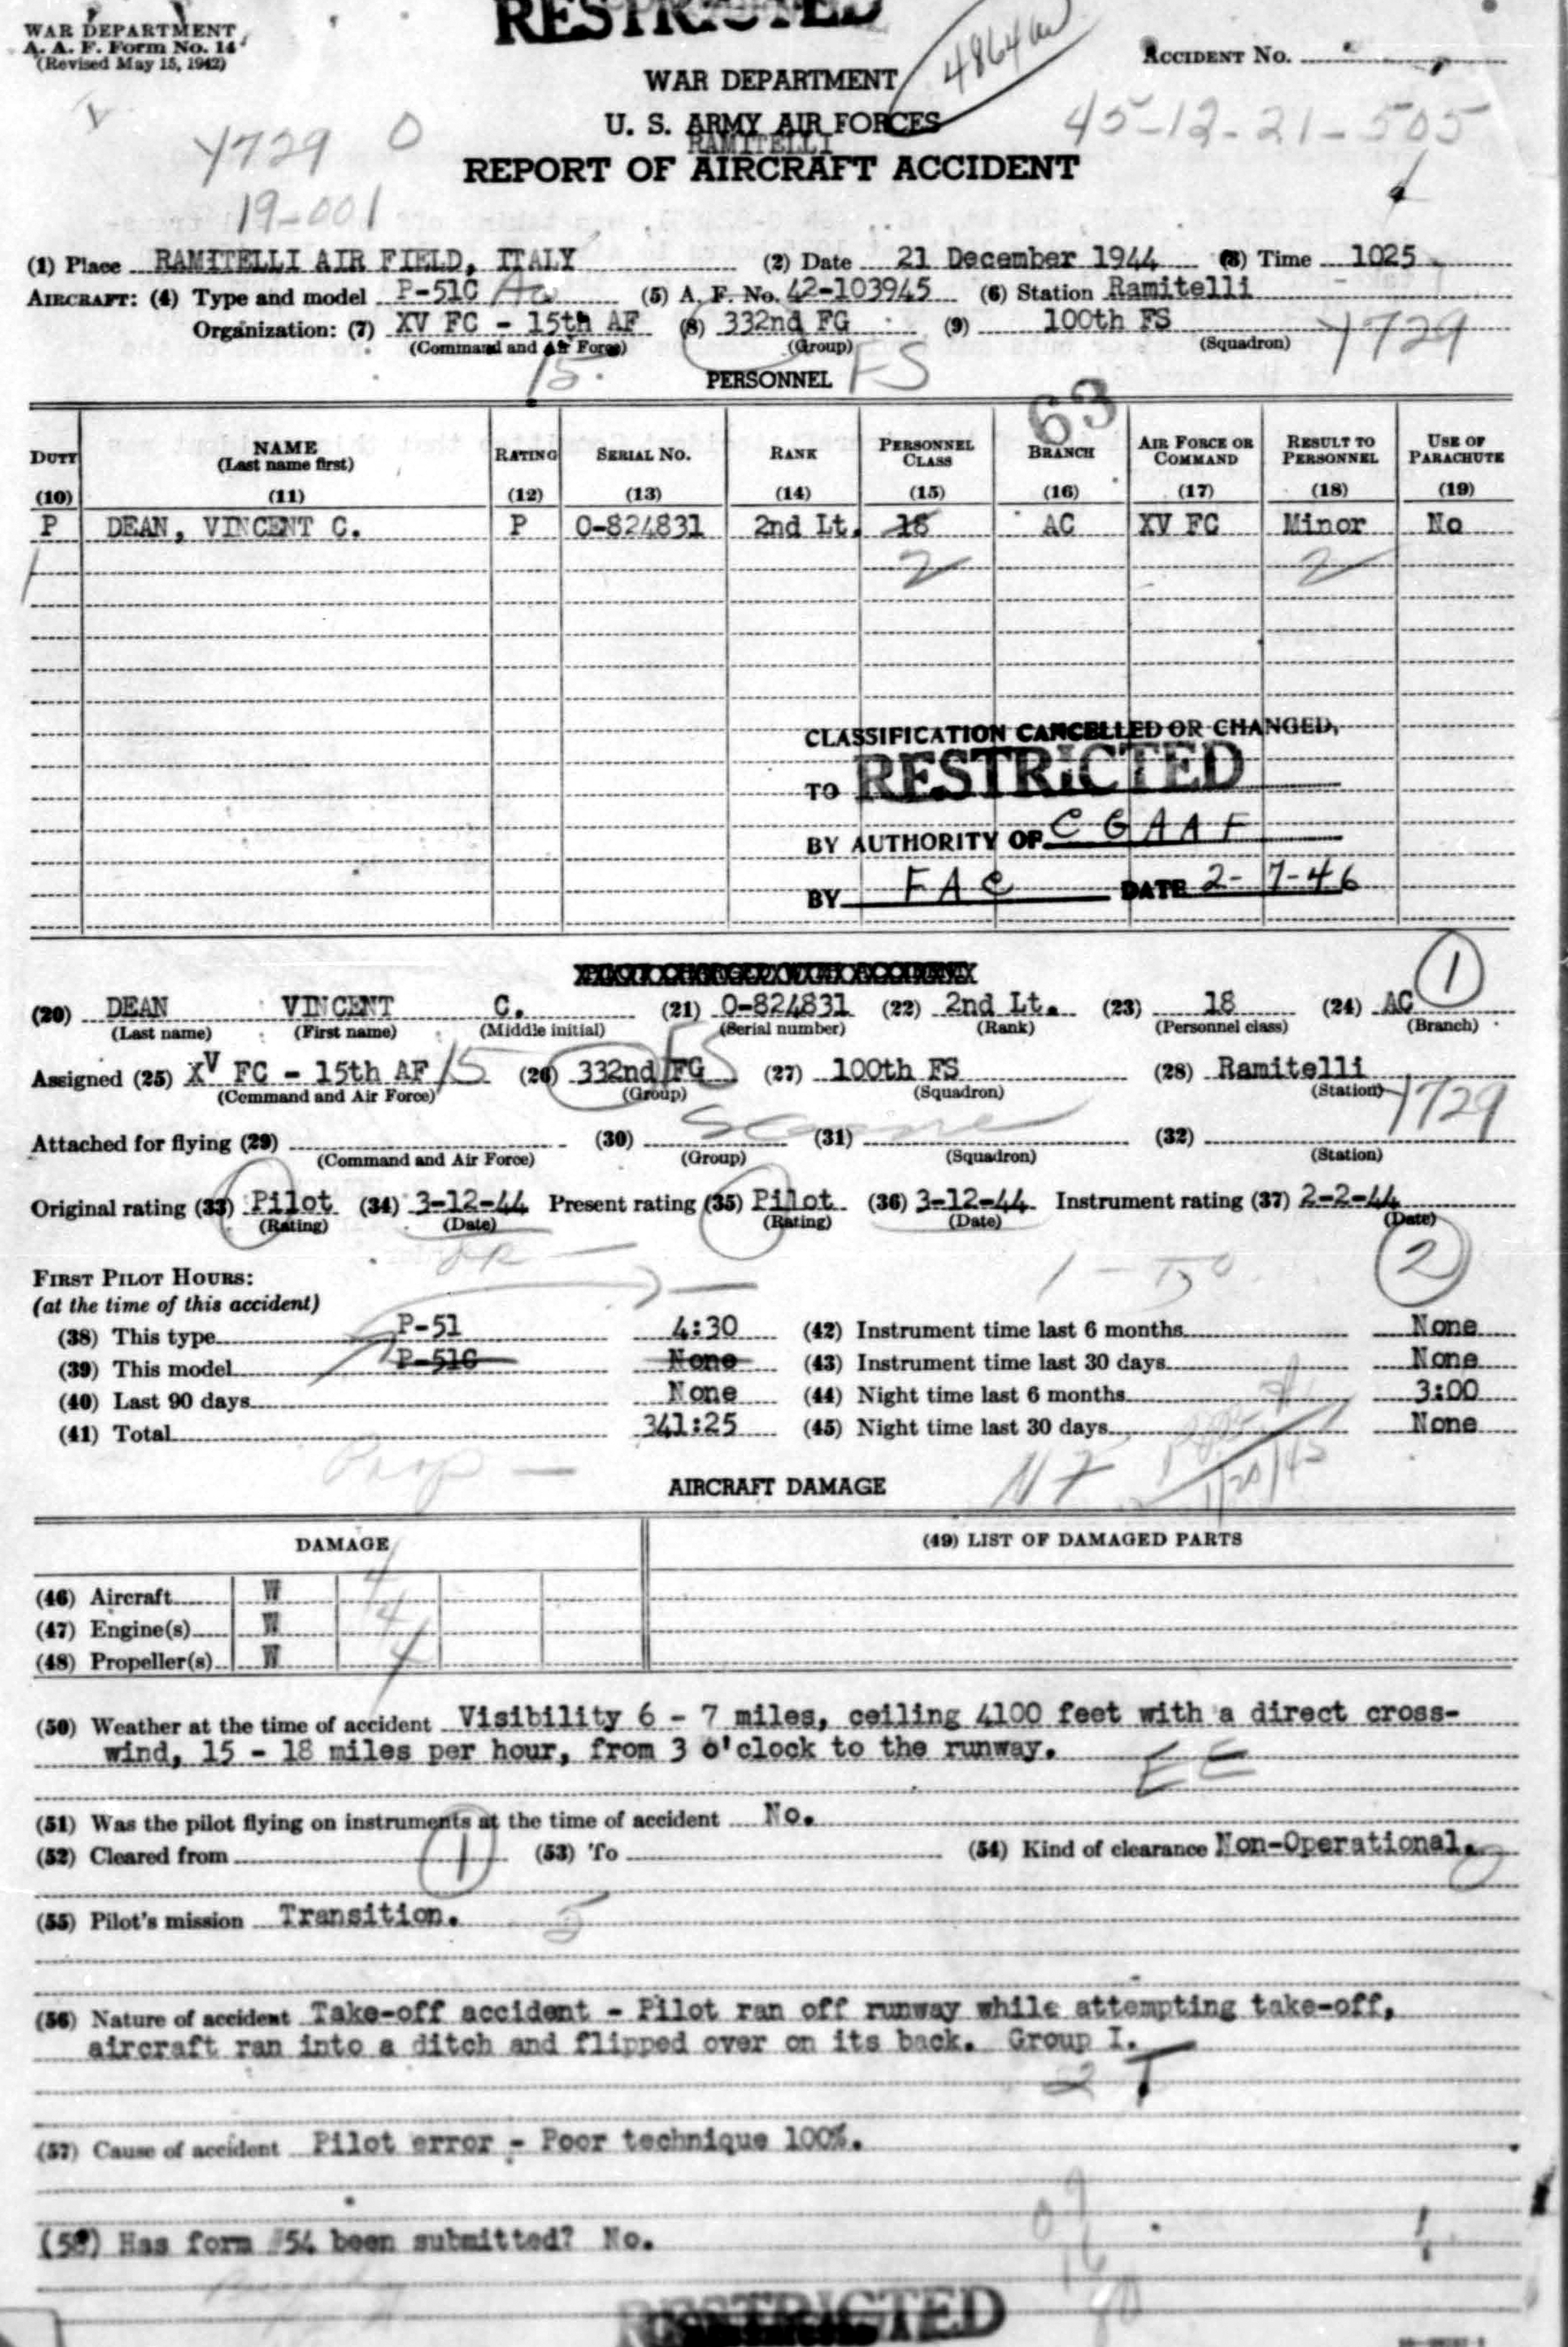 RESTRICTED
WAR DEPARTMENT
A. A. F. Form No. 14
(Revised May 15, 1942)
ACCIDENT No.
WAR DEPARTMENT
U. S. ARMY AIR FORCES
45-12-21-505
RAMITELLI
Y729 O
REPORT OF AIRCRAFT ACCIDENT
19-001
(1) Place RAMITELLI AIR FIELD, ITALY (2) Date 21 December 1944 (3) Time 1025
AIRCRAFT: (4) Type and model P-51C (5) A. F. No. 42-103945 (6) Station Ramitelli
Organization: (7) XV FC - 15th AF (8) 332nd FG (9) 100th FS Y729
(Command and Air Force) (Group) (Squadron)
15 PERSONNEL FS
63
DUTY NAME (Last name first) RATING SERIAL NO. RANK PERSONNEL CLASS BRANCH AIR FORCE OR COMMAND RESULT TO PERSONNEL USE OF PARACHUTE
(10) (11) (12) (13) (14) (15) (16) (17) (18) (19)
P DEAN, VINCENT C. P O-824831 2nd Lt. 18 AC XV FC Minor No
2 2
CLASSIFICATION CANCELLED OR CHANGED,
TO RESTRICTED
BY AUTHORITY OF C G A A F
BY F A C DATE 2-7-46
1
(20) DEAN VINCENT C. (21) O-824831 (22) 2nd Lt. (23) 18 (24) AC
(Last name) (First name) (Middle initial) (Serial number) (Rank) (Personnel class) (Branch)
Assigned (25) XV FC - 15th AF 15 (26) 332nd FG FS (27) 100th FS (28) Ramitelli
(Command and Air Force) (Group) (Squadron) (Station) Y729
Attached for flying (29) (30) (31) (32)
(Command and Air Force) (Group) (Squadron) (Station)
Original rating (33) Pilot (34) 3-12-44 Present rating (35) Pilot (36) 3-12-44 Instrument rating (37) 2-2-44
(Rating) (Date) (Rating) (Date) (Date)
2
FIRST PILOT HOURS:
(at the time of this accident)
(38) This type P-51 4:30 (42) Instrument time last 6 months None
(39) This model P-51C None (43) Instrument time last 30 days None
(40) Last 90 days None (44) Night time last 6 months 3:00
(41) Total 341:25 (45) Night time last 30 days None
Prop
AIRCRAFT DAMAGE
DAMAGE (49) LIST OF DAMAGED PARTS
(46) Aircraft W 4
(47) Engine(s) W 4
(48) Propeller(s) W 4
(50) Weather at the time of accident Visibility 6 - 7 miles, ceiling 4100 feet with a direct cross-
wind, 15 - 18 miles per hour, from 3 o'clock to the runway.
(51) Was the pilot flying on instruments at the time of accident No.
(52) Cleared from 1 (53) To (54) Kind of clearance Non-Operational.
(55) Pilot's mission Transition. 5
(56) Nature of accident Take-off accident - Pilot ran off runway while attempting take-off,
aircraft ran into a ditch and flipped over on its back. Group I.
2 T
(57) Cause of accident Pilot error - Poor technique 100%.
(58) Has form #54 been submitted? No.
RESTRICTED